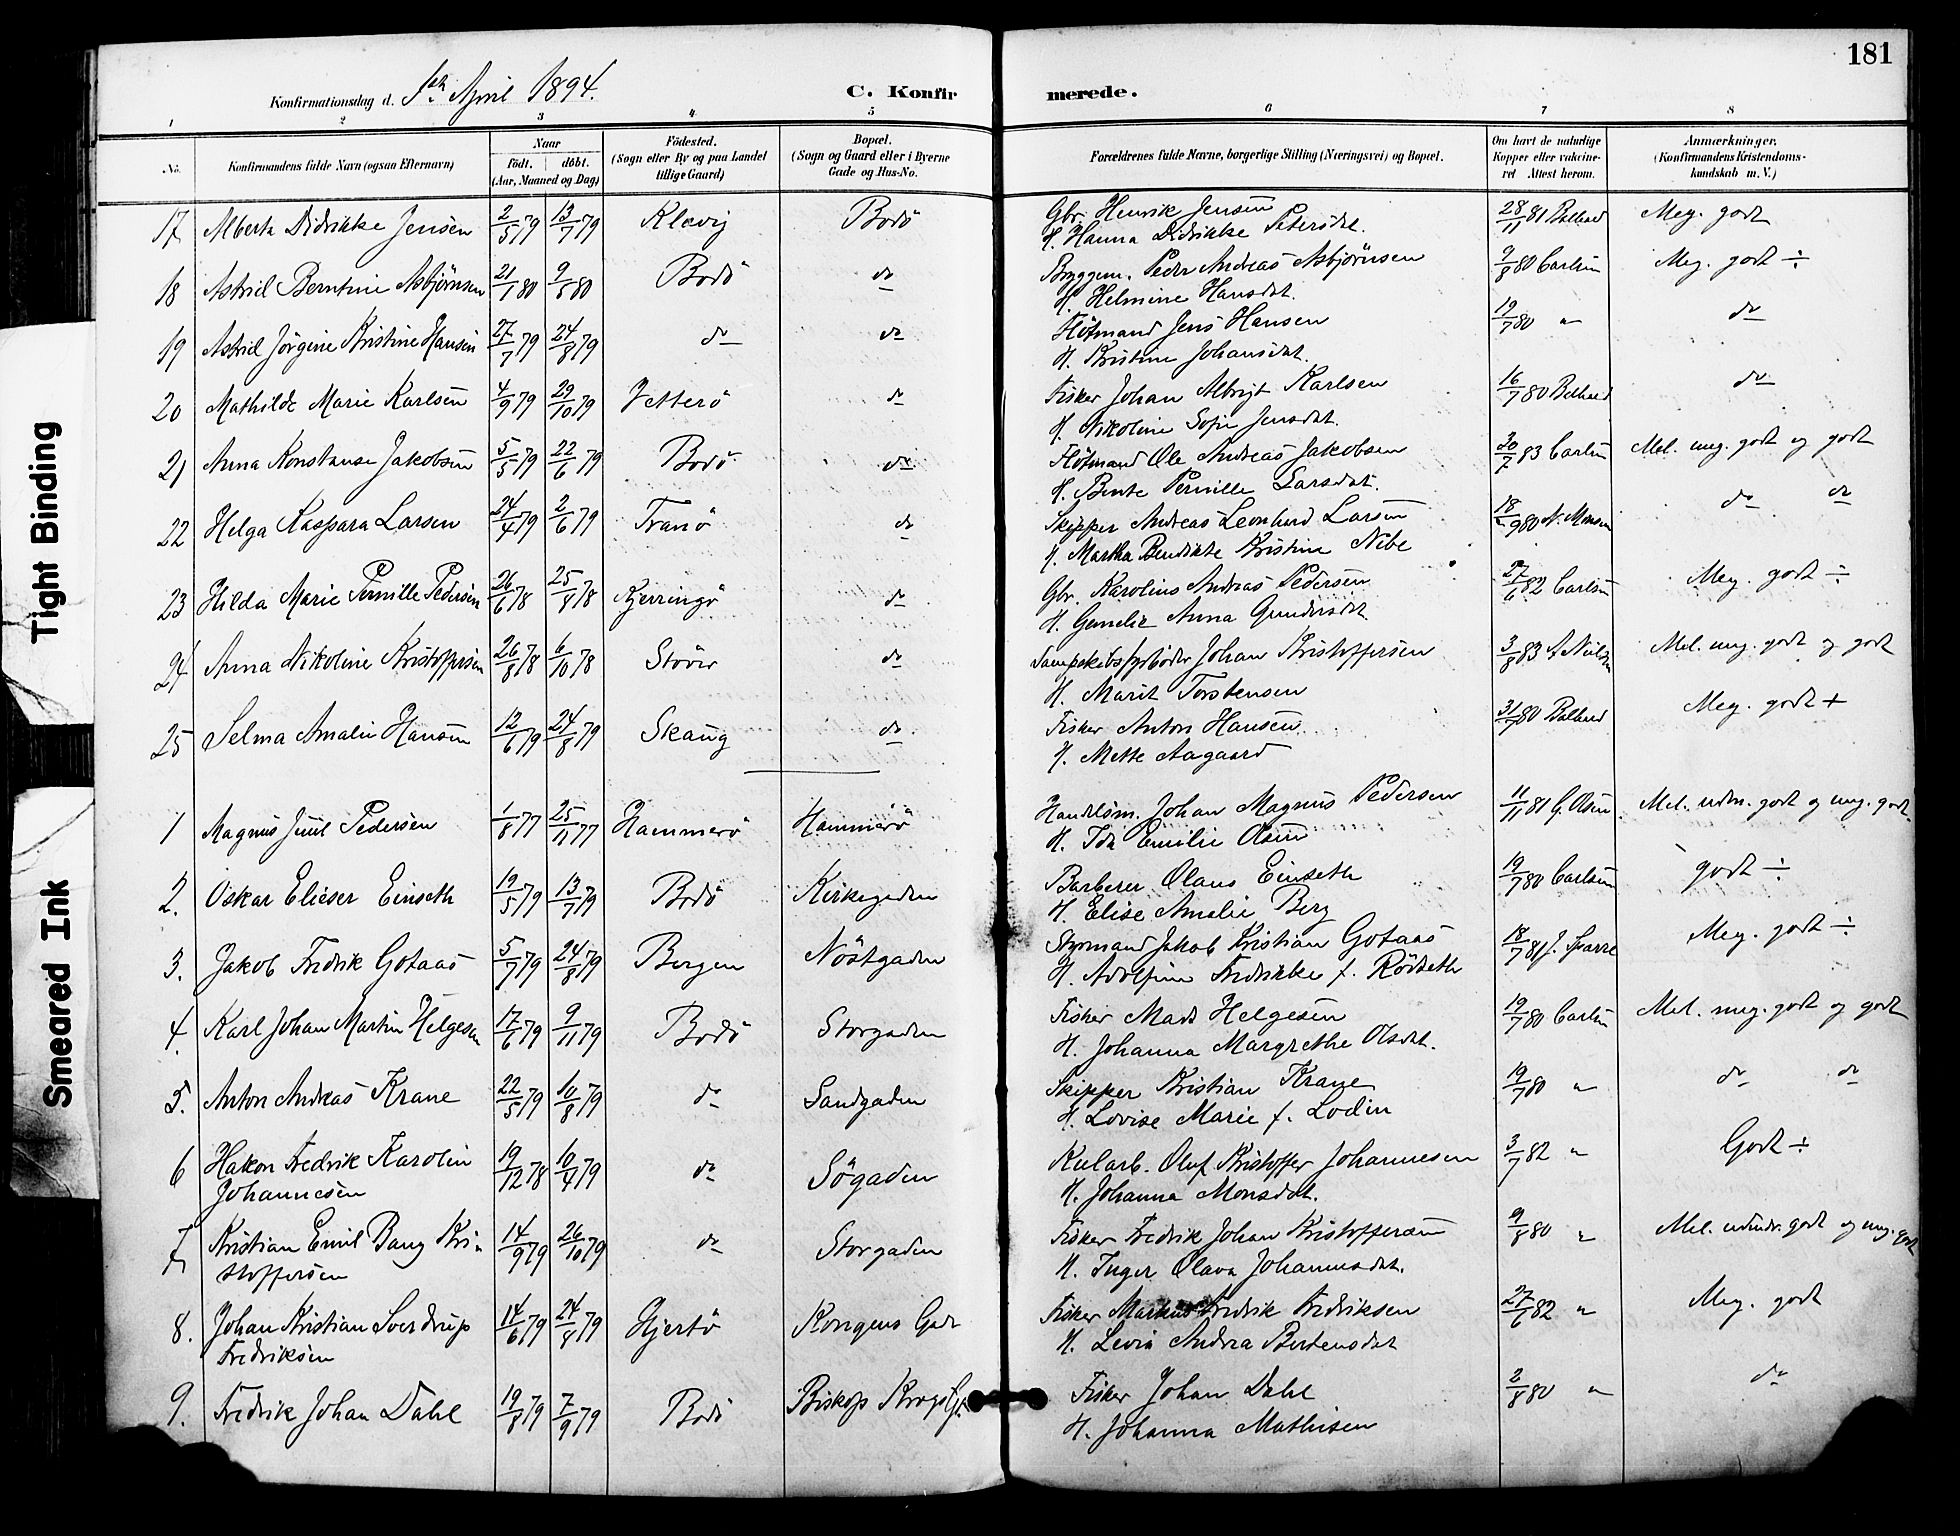 181
Konfirmationsdag d. 1ste April 1894. C. Konfirmerede.
1 2 3 4 5 6 7 8
No. Konfirmandens fulde Navn (ogsaa Efternavn) Naar født. døbt. (Aar, Maaned og Dag) Födested. (Sogn eller By og paa Landet tillige Gaard) Bopæl. (Sogn og Gaard eller i Byerne Gade og Hus-No. Forældrenes fulde Navne, borgerlige Stilling (Næringsvei) og Bopæl. Om havt de naturlige Kopper eller vaccineret Attest herom. Anmærkninger. (Konfirmandens Kristendomskundskab m. V.)
17 Alberta Didrikke Jensen 2/5 79 13/7 79 Bodö Gbr. Henrik Jensen 28/11 81 Meg. godt
H. Hanna Didrikke Petersdt.
18 Astrid Berntine Asbjörnsen 21/1 80 9/5 80 Bodö do Byggem. Peder Andreas Asbjörnsen 9/8 80 Carlsen Meg. godt ÷
H. Helmine Hansdat.
19 Astrid Jörgine Kristine Hansen 27/7 79 24/8 79 do do Flötmand Jens Hansen 19/7 80 " do
H. Kristine Johansdat.
20 Mathilde Marie Karlsen 4/9 79 29/10 79 Jetterö do Fisker Johan Albrigt Karlsen 16/7 80 do
H. Nikoline Sofie Jensdat.
21 Anna Konstanse Jakobsen 5/5 79 22/6 79 Bodö do Flötmand Ole Andreas Jakobsen 30/7 83 Carlsen Mel. meg. godt og godt
H. Bente Pernille Larsdat.
22 Helga Kaspara Larsen 24/4 79 2/6 79 Tranö do Skipper Andreas Leonhard Larsen 18/9 80 N. Monsen do do
H. Martha Bendikte Kristine Nibe
23 Hilda Marie Pernille Pedersen 26/6 78 25/8 78 Kjerringö do Gbr. Karolius Andreas Pedersen 27/6 82 Carlsen Meg. godt ÷
H. Anna Gundersdat.
24 Anna Nikoline Kristoffersen 26/8 78 6/10 78 do Johan Kristoffersen 3/8 83 Mel. meg. godt og godt
H. Marit Torstensen
25 Selma Amalie Hansen 12/6 79 24/8 79 Skaug do Fisker Anton Hansen 31/7 80 Meg. godt +
H. Mette Aagaard
1 Magnus Juul Pedersen 1/8 77 25/11 77 Hammerö Hammerö Handelsm. Johan Magnus Pedersen 11/11 81 G. Olsen Mel. udm. godt og meg. godt.
H. Ida Emilie Olsen
2. Oskar Elieser Einseth 19/5 79 13/7 79 Bodö Kirkegaden Barberer Olaus Einseth 19/7 80 Carlsen godt ÷
H. Elise Amalie Berg
3. Jakob Fredrik Gotaas 5/7 79 24/8 79 Bergen Nöstgaden Styrmand Jakob Kristian Gotaas 18/7 81 J. Sparre Meg. godt ÷
H. Adolfine Fredrikke f. Rödseth
4. Karl Johan Martin Helgesen 17/6 79 9/11 79 Bodö Storgaden Fisker Mads Helgesen 19/7 80 Carlsen Mel. meg. godt og godt
H. Johanna Margrethe Olsdat.
5. Anton Andreas Krane 22/5 79 10/8 79 do Sandgaden Skipper Kristian Krane 19/7 80 " do do
H. Lovise Marie f. Lodin
6 Hakon Fredrik Karolin 19/12 78 10/4 79 do Sögaden Kularb. Oluf Kristoffer Johannesen 3/7 82 " Godt ÷
Johannesen H. Johanna Monsdat.
7 Kristian Emil Bang Kri- 14/9 79 26/10 79 do Storgaden Fisker Fredrik Johan Kristoffersen 9/8 80 " Mel. udmr. godt og meg. godt
stoffersen H. Inger Olava Johannesdat.
8. Johan Kristian Sverdrup 14/6 79 24/8 79 Hjertö Kongens Gade Fisker Markus Fredrik Fredriksen 27/6 82 " Meg. godt
Fredriksen H. Levia Andrea Berdensdat
9. Fredrik Johan Dahl 19/8 79 7/9 79 Bodö Biskop Krogs Gt. Fisker Johan Dahl 2/8 80 " do
H. Johanna Mathisen
Tight Binding
Smeared Ink